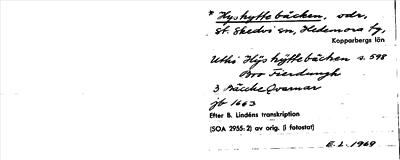 * Hyshyttebäcken, vdr,
St. Skedvi sn, Hedemora tg,
Kopparbergs län
Uthi Hÿshÿttebäcken s. 598
Broo Fierdungh
3 Bäcke Qvarnar
jb 1663
Efter B. Lindéns transkription
(SOA 2955:2) av orig. (i fotostat)
E.L. 1969